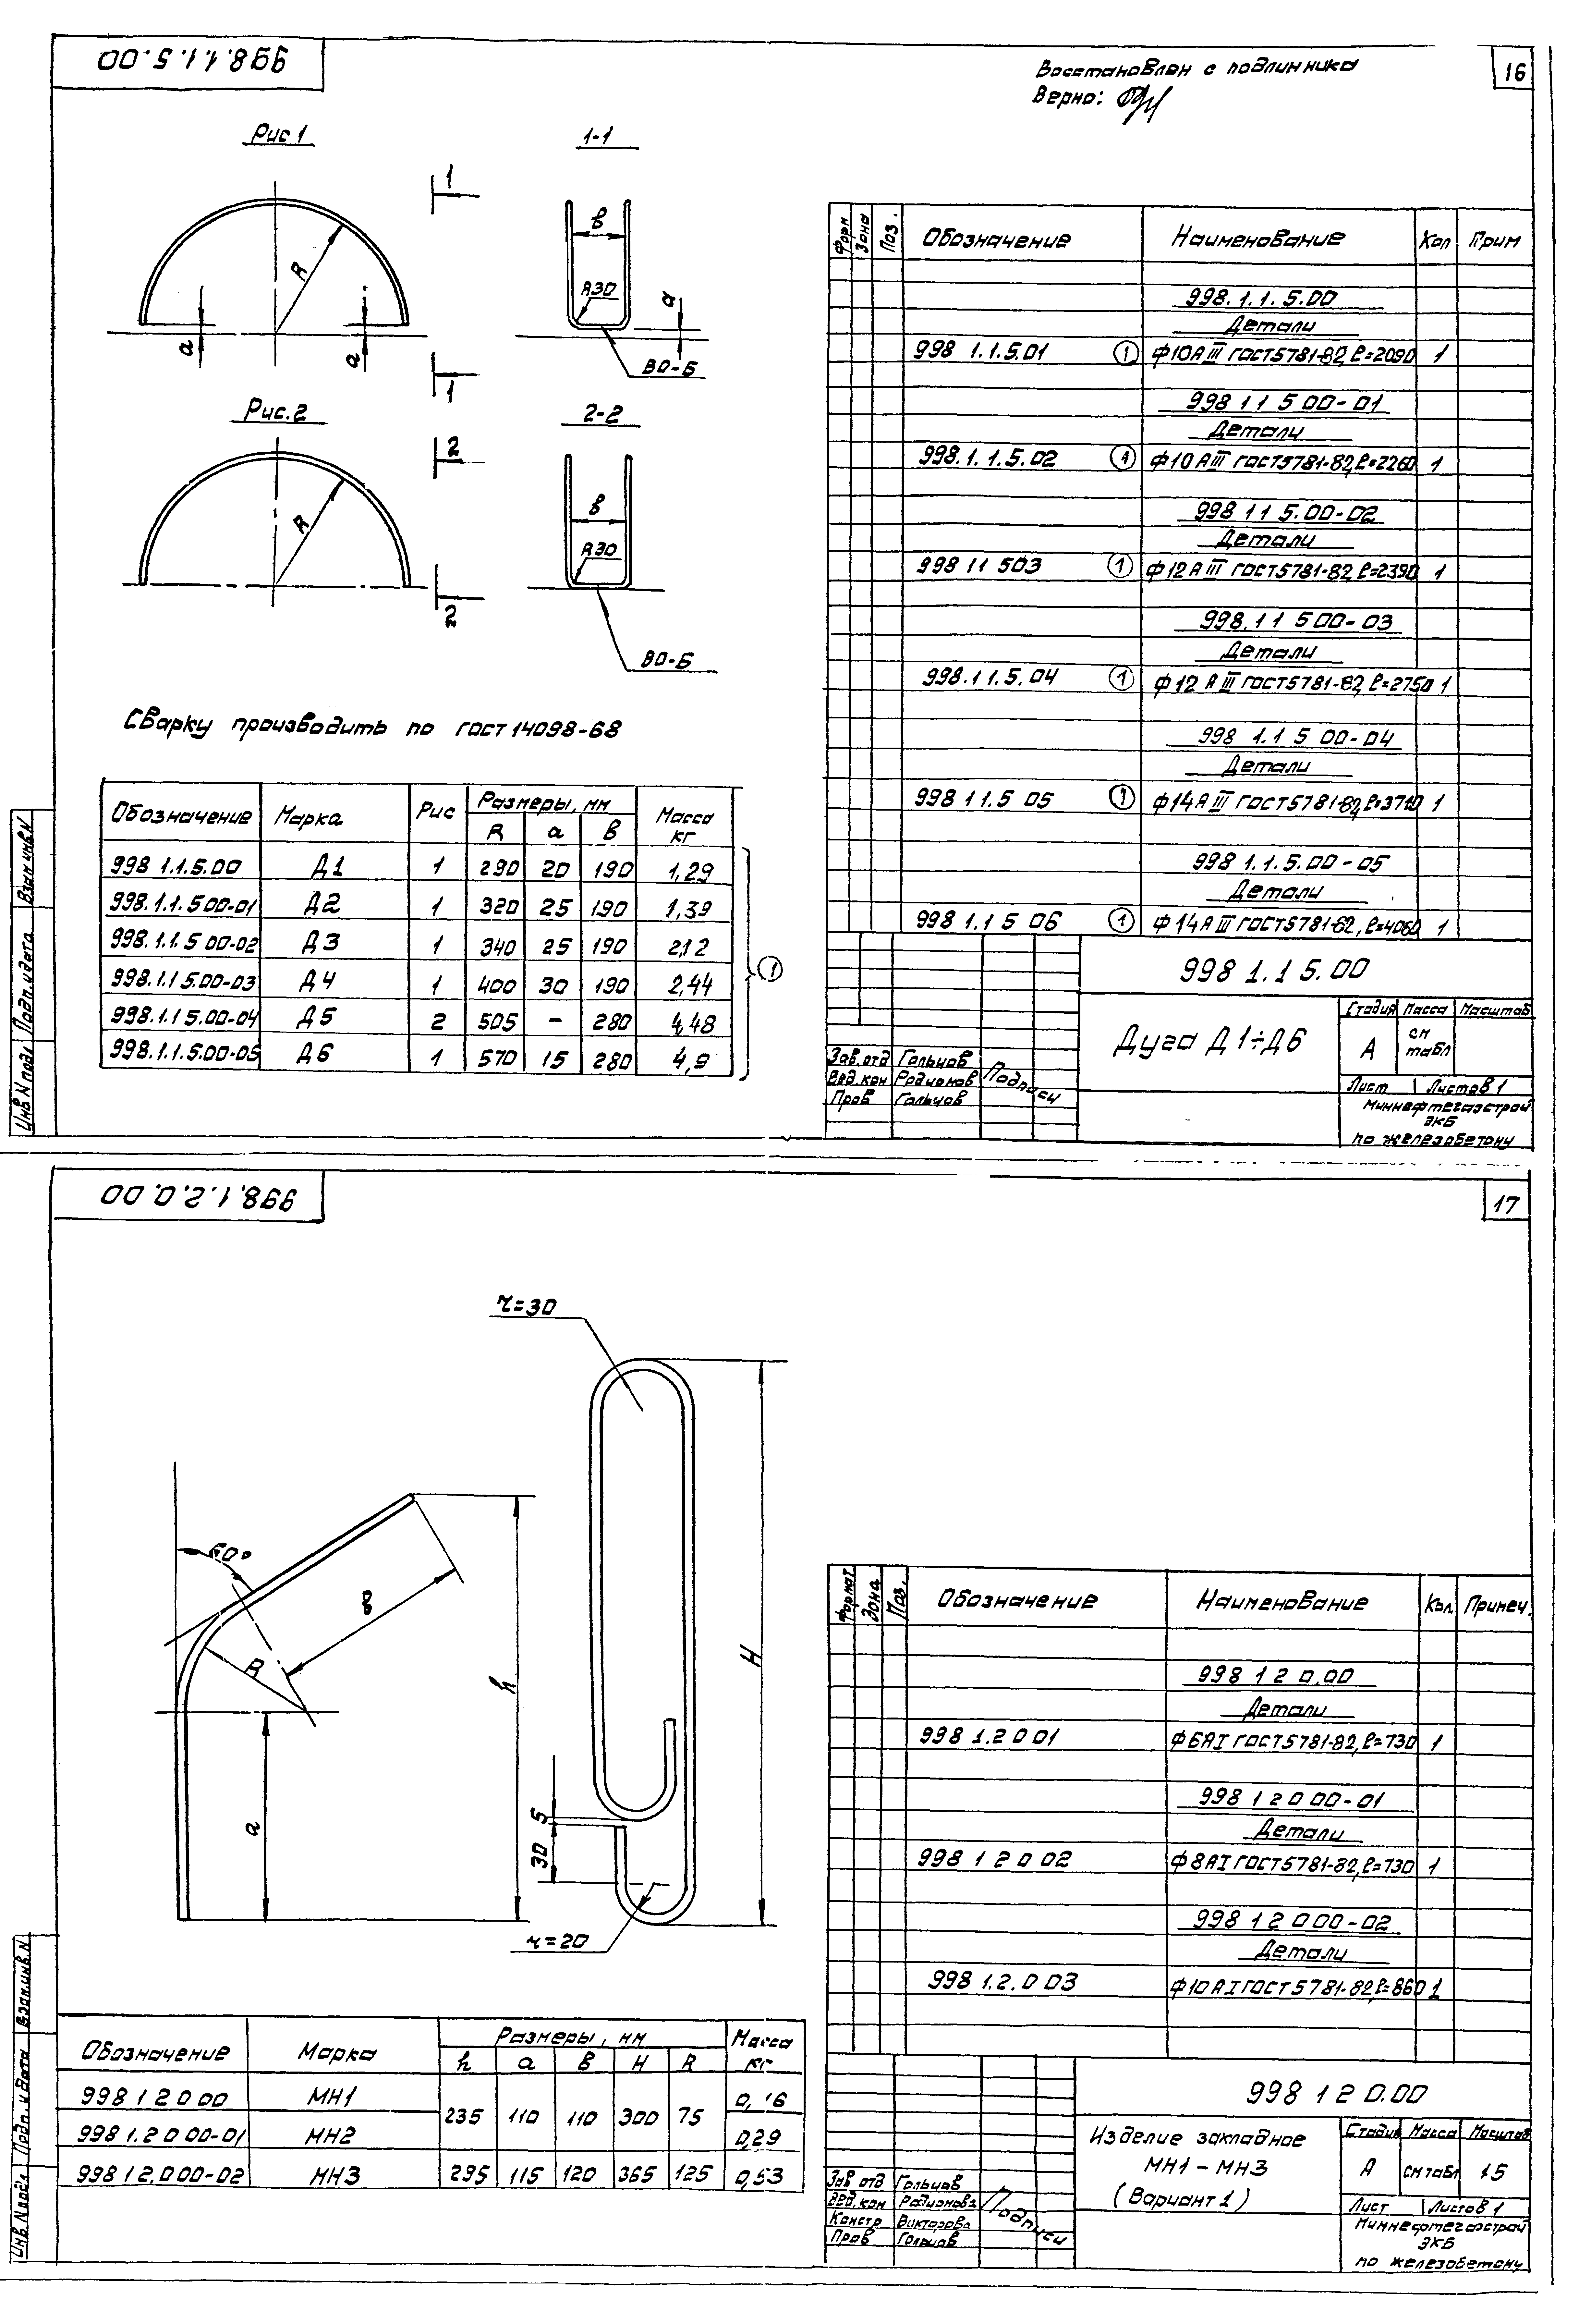 998.1.1.5.00
Восстановлен с подлинника
Верно:
16
Рис 1
1-1
1
R
а
а
1
в
R30
а
ВО-Б
Рис. 2
2-2
2
R
2
в
R30
ВО-Б
Сварку производить по ГОСТ 14098-68
Обозначение Марка Рис Размеры, мм Масса кг
R а в
998 1.1.5.00 Д1 1 290 20 190 1,29
998.1.1.5 00-01 Д2 1 320 25 190 1,39
998.1.1.5 00-02 Д3 1 340 25 190 2,12
998.1.1 5.00-03 Д4 1 400 30 190 2,44
998.1.1 5.00-04 Д5 2 505 - 280 4,48
998.1.1.5.00-05 Д6 1 570 15 280 4,9
1
Форм Зона Поз. Обозначение Наименование Кол Прим
998.1.1.5.00
Детали
998 1.1.5.01 1 Ф10АIII ГОСТ 5781-82, ℓ=2090 1
998 1 1 5 00-01
Детали
998.1.1.5.02 1 Ф10 АIII ГОСТ 5781-82, ℓ=2260 1
998 1 1 5.00-02
Детали
998 1 1 5 03 1 Ф12 А III ГОСТ 5781-82, ℓ=2390 1
998.1 1 5 00-03
Детали
998.1 1.5.04 1 Ф12 А III ГОСТ 5781-82, ℓ=2750 1
998 1.1 5 00-04
Детали
998 1 1.5 05 1 Ф14А III ГОСТ 5781-82, ℓ=3710 1
998 1.1.5.00-05
Детали
998 1.1 5 06 1 Ф14А III ГОСТ 5781-82, ℓ=4060 1
998 1.1 5.00
Дуга Д1÷Д6
Стадия Масса Масштаб
А см табл
Лист Листов 1
Миннефтегазстрой
ЭКБ
по железобетону
Зав.отд Гольцов
Вед.кон Родионов
Пров Гольцов
Подписи
Инв N подл Подп. и дата Взам инв.N
998.1.2.0.00
17
r=30
60°
R
в
h
а
H
5
30
r=20
Обозначение Марка Размеры, мм Масса кг
h а в H R
998 1 2 0 00 МН1 235 110 110 300 75 0,16
998 1.2 0 00-01 МН2 0,29
998 1 2.0 00-02 МН3 295 115 120 365 125 0,53
Формат Зона Поз. Обозначение Наименование Кол. Примеч.
998 1 2 0.00
Детали
998 1.2 0 01 Ф6АI ГОСТ 5781-82, ℓ=730 1
998 1 2 0 00-01
Детали
998 1 2 0 02 Ф8АI ГОСТ 5781-82, ℓ=730 1
998 1 2 0 00-02
Детали
998 1.2.0 03 Ф10 АI ГОСТ 5781-82, ℓ=860 1
998 1 2 0.00
Изделие закладное
МН1-МН3
(Вариант 1)
Стадия Масса Масштаб
А см табл 1 5
Лист Листов 1
Миннефтегазстрой
ЭКБ
по железобетону
Зав отд Гольцов
Вед.кон Родионова
Констр Викторова
Пров Гольцов
Подписи
Инв.N подл Подп. и дата Взам.инв.N